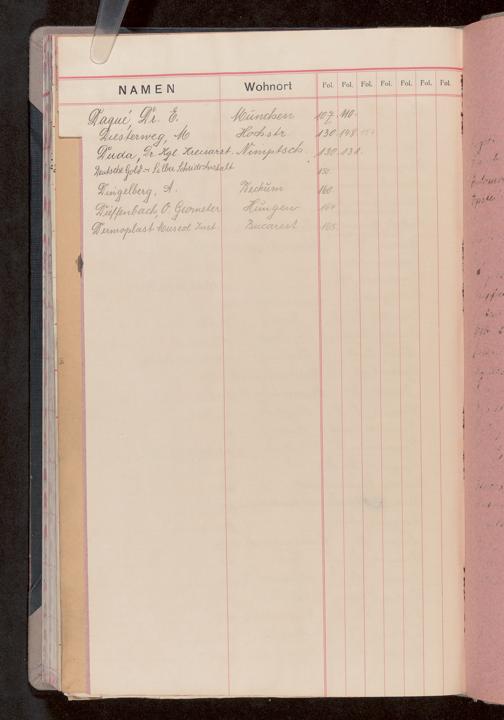 NAMEN Wohnort Fol. Fol. Fol. Fol. Fol. Fol. Fol.
Daqué, Dr. E. München 107. 110.
Diesterweg, M Hochstr. 130 148
Duda, Dr. Kgl. Kreisarzt. Nimptsch. 130. 131.
Deutsche Gold- u Silber Scheide Anstalt 150.
Dingelberg, A. Beckum 160.
Dieffenbach, O. Geometer Hungen 164
Dermoplast Museol Inst Bucarest 165.